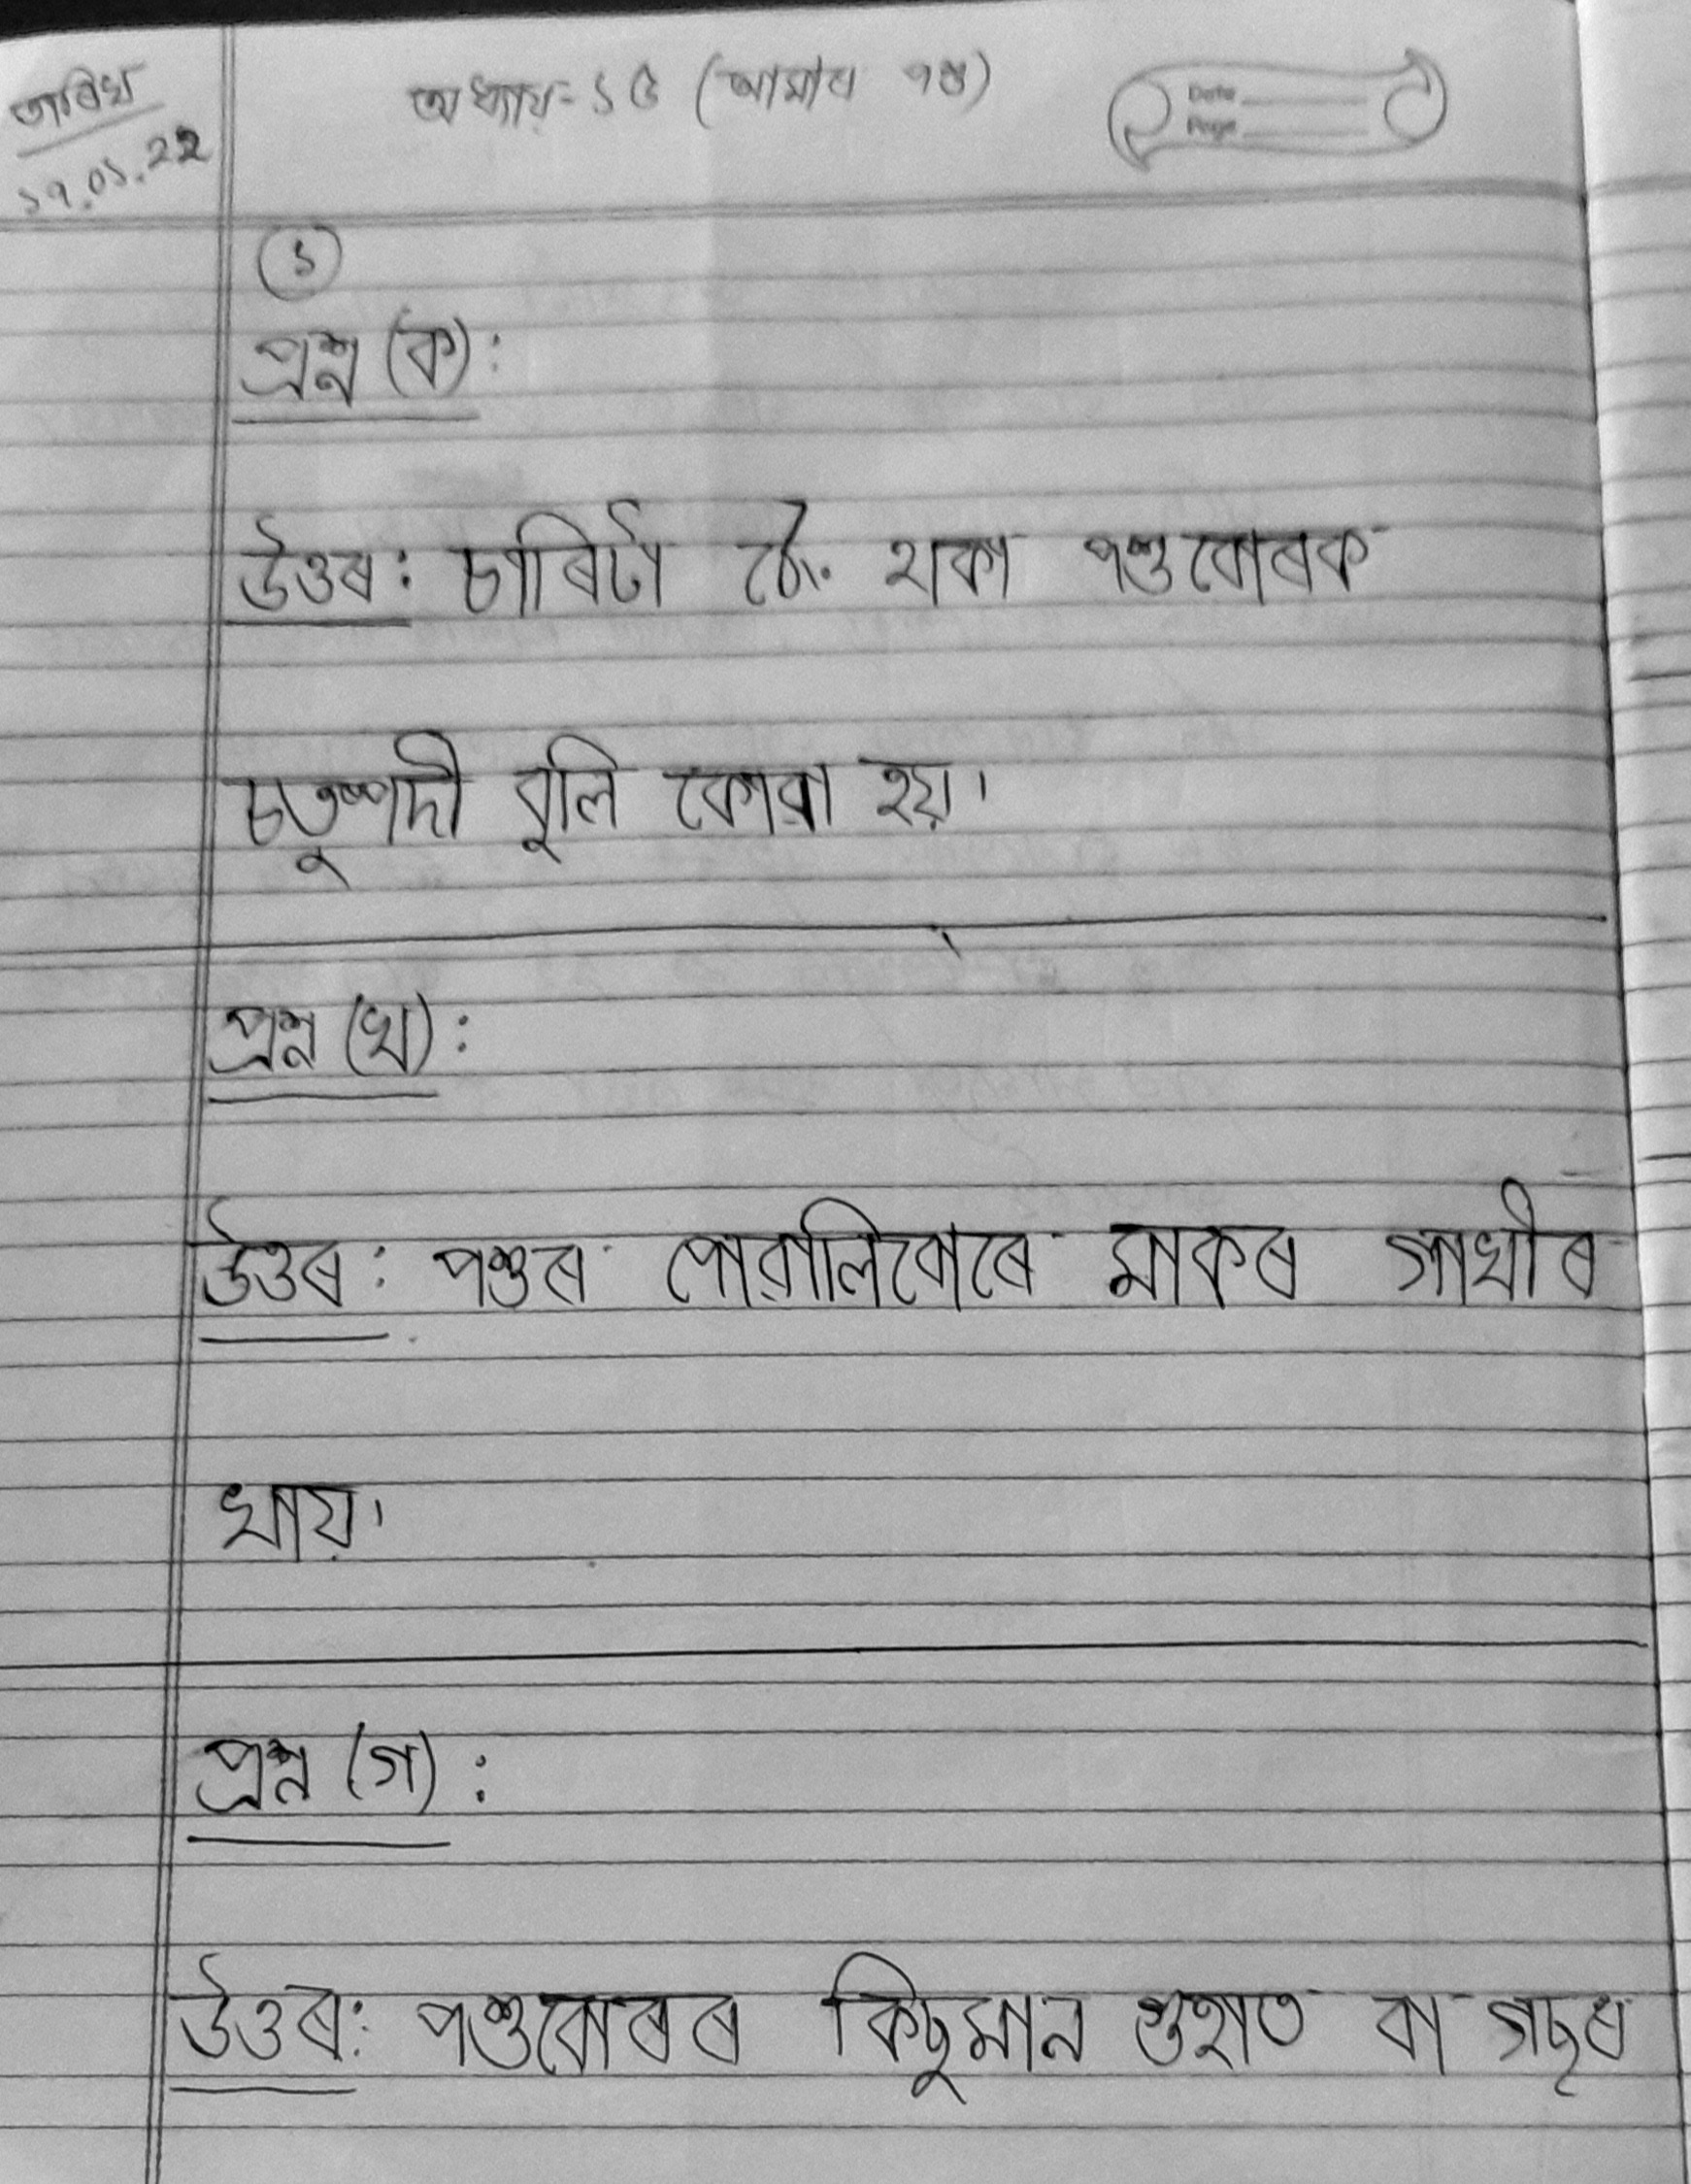 তাৰিখ
১৭.০১.২২
অধ্যায়-১৫ (আমাৰ পশু)
Date
Page
১
প্ৰশ্ন (ক):
উত্তৰ: চাৰিটা ঠেং থকা পশুবোৰক
চতুষ্পদী বুলি কোৱা হয়।
প্ৰশ্ন (খ):
উত্তৰ: পশুৰ পোৱালিবোৰে মাকৰ গাখীৰ
খায়।
প্ৰশ্ন (গ):
উত্তৰ: পশুবোৰৰ কিছুমান গুহাত বা গছৰ